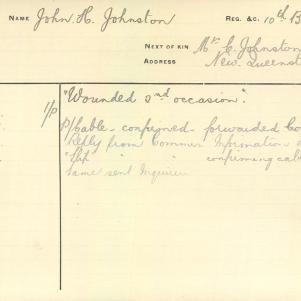 NAME John. H. Johnston REG. &C. 10th B
NEXT OF KIN Mr. C. Johnston
ADDRESS New. Queenst
"Wounded 2nd occasion".
1/P P/Cable. confirmed. forwarded Co
Reply from Common Information
" " confirming cabl
same sent Inquirer